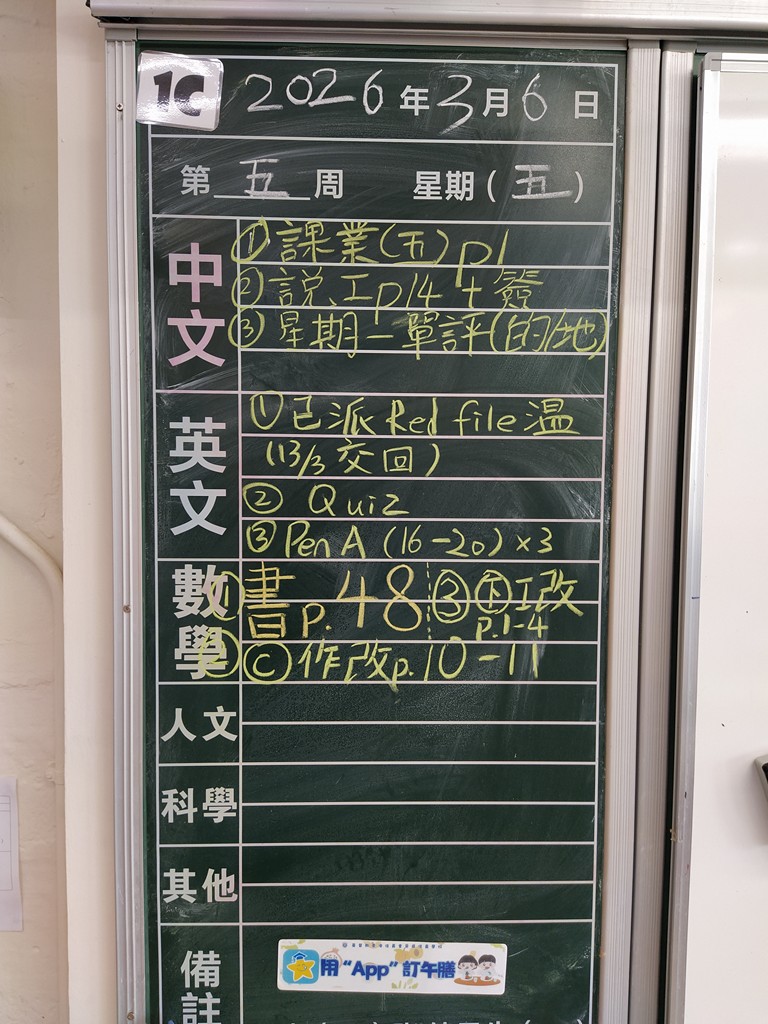 1C 2026年3月6日
第五周 星期(五)
中文
①課業(五)p1
②説工p14+簽
③星期一單評(的/地)
英文
①已派Red file溫
(13/3交回)
②Quiz
③Pen A (16-20)×3
數學
①書p.48
②Ⓒ作改p.10-11
③㊦工改
p.1-4
人文
科學
其他
備註
用“App”訂午膳